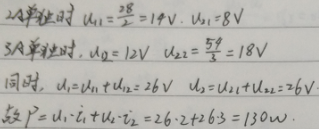 2A单独时 u₁₁=28/2=14V. u₂₁=8V
3A单独时. u₁₂=12V u₂₂=54/3=18V
同时. u₁=u₁₁+u₁₂=26V u₂=u₂₁+u₂₂=26V.
P=u₁·i₁+u₂·i₂=26·2+26·3=130w.